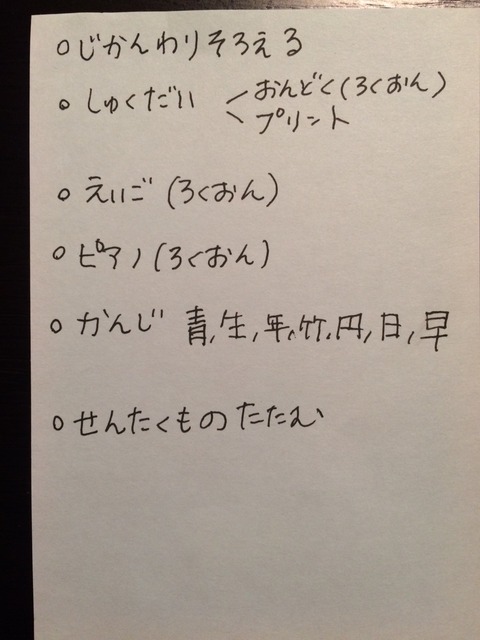 ○ じかんわりそろえる
○ しゅくだい < おんどく(ろくおん)
プリント
○ えいご (ろくおん)
○ ピアノ (ろくおん)
○ かんじ 青,生,年,竹,円,日,早
○ せんたくもの たたむ